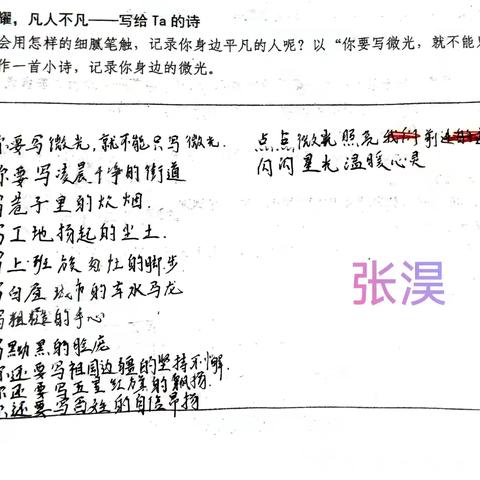 耀，凡人不凡——写给 Ta 的诗
会用怎样的细腻笔触，记录你身边平凡的人呢？以“你要写微光，就不能只
作一首小诗，记录你身边的微光。
你要写微光，就不能只写微光.
你要写凌晨干净的街道
写巷子里的炊烟.
写工地扬起的尘土.
写上班族匆忙的脚步
写白座城市的车水马龙
写粗糙的手心
写黝黑的脸庞
你还要写祖国边疆的坚持不懈.
你还要写五星红旗的飘扬
你还要写百姓的自信昂扬
点点微光照亮
闪闪星光温暖心灵
张淏